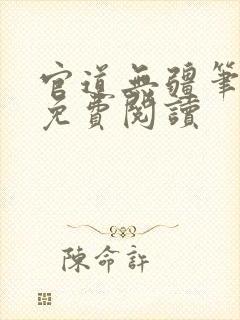 官道無疆筆
免費閱讀
陳命許